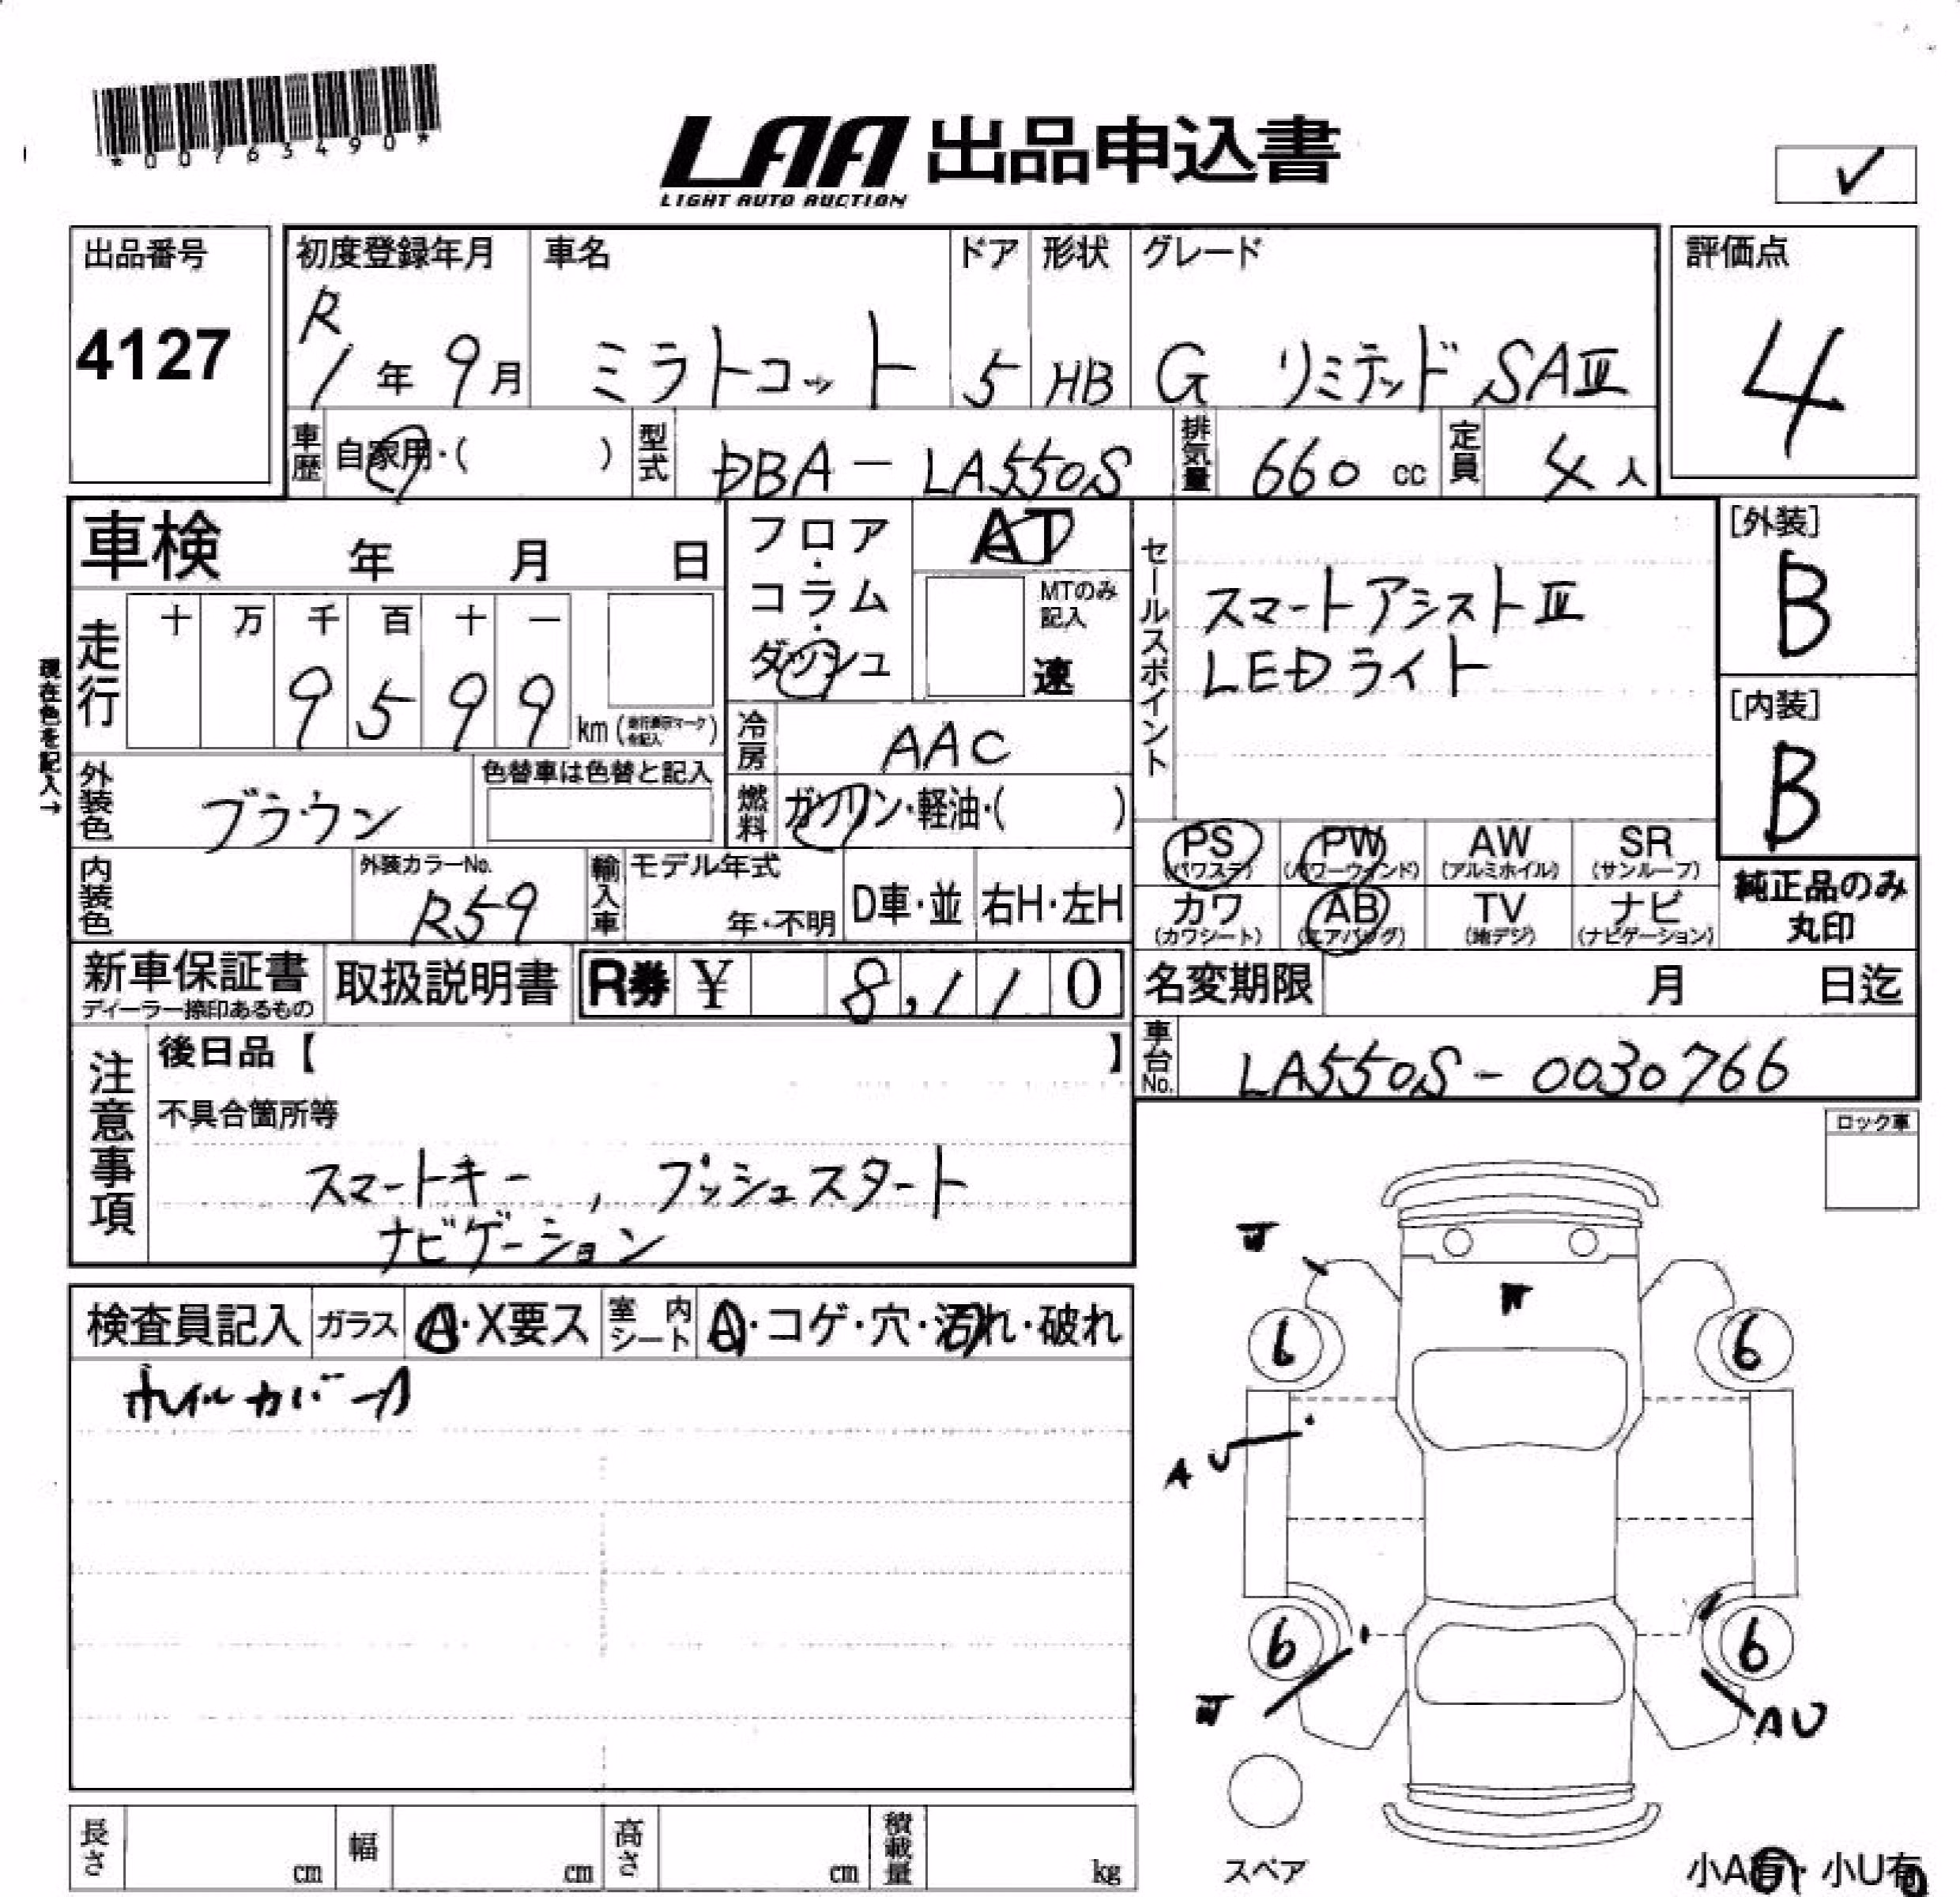 *00763490*
LAA 出品申込書
LIGHT AUTO AUCTION
✓
出品番号
4127
初度登録年月
R
1年 9月
車名
ミラトコット
ドア
5
形状
HB
グレード
G リミテッド SAⅢ
評価点
4
車歴
自家用・( )
型式
DBA-LA550S
排気量
660 cc
定員
4人
車検 年 月 日
フロア・コラム・ダッシュ
AT
MTのみ記入
速
現在色を記入→
走行
十 万 千 百 十 一
9 5 9 9
km
冷房
AAC
外装色
ブラウン
色替車は色替と記入
燃料
ガソリン・軽油・( )
セールスポイント
スマートアシストⅢ
LEDライト
[外装]
B
[内装]
B
PS
(パワステ)
PW
(パワーウインド)
AW
(アルミホイル)
SR
(サンルーフ)
カワ
(カワシート)
AB
(エアバッグ)
TV
(地デジ)
ナビ
(ナビゲーション)
純正品のみ
丸印
内装色
外装カラーNo.
R59
輸入車
モデル年式
年・不明
D車・並
右H・左H
新車保証書
ディーラー捺印あるもの
取扱説明書
R券 ¥ 8,110
名変期限 月 日迄
車台No.
LA550S-0030766
注意事項
後日品【 】
不具合箇所等
スマートキー, プッシュスタート
ナビゲーション
ロック車
検査員記入
ガラス
A・X要ス
室内シート
A・コゲ・穴・汚れ・破れ
ホイルカバーA
6
6
A U
6
6
AU
スペア
長さ cm
幅 cm
高さ cm
積載量 kg
小A有・小U有